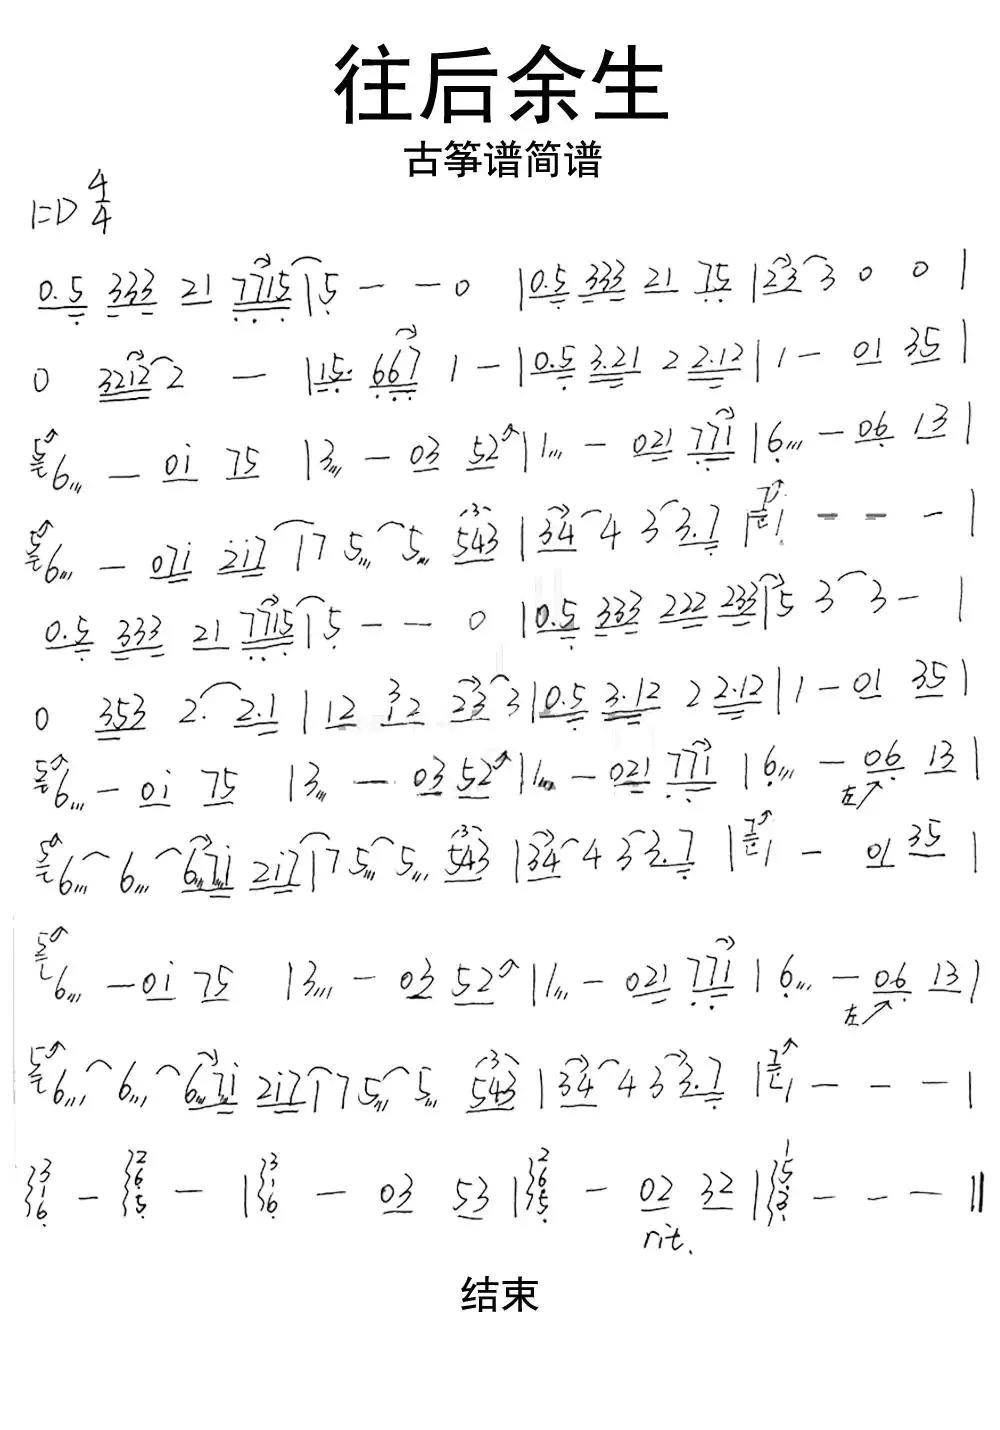 往后余生
古筝谱简谱
1=D 4/4
0.5 333 21 7715 | 5 - - 0 | 0.5 333 21 75 | 23 3 0 0 |
0 3212 2 - | 15. 667 1 - | 0.5 3.21 2 2.12 | 1 - 01 35 |
5 6 - 0i 75 | 3 - 03 52 | 1 - 021 771 | 6 - 06 13 |
5 6 - 07i 2i7 | 7 5 5 543 | 34 4 3 3.7 | 7 1 - - - |
0.5 333 21 7715 | 5 - - 0 | 0.5 333 222 233 | 5 3 3 - |
0 353 2. 2.1 | 12 312 23 3 | 0.5 3.12 2 2.12 | 1 - 01 35 |
5 6 - 0i 75 | 3 - 03 52 | 1 - 021 771 | 6 - 06 13 |
左
5 6 6 67i 2i7 | 7 5 5 543 | 34 4 3 3.7 | 7 1 - 01 35 |
5 6 - 0i 75 | 3 - 03 52 | 1 - 021 771 | 6 - 06 13 |
左
5 6 6 67i 2i7 | 7 5 5 543 | 34 4 3 3.7 | 7 1 - - - |
316 - 265 - | 316 - 03 53 | 265 - 02 32 | 1531 - - - ||
rit.
结束